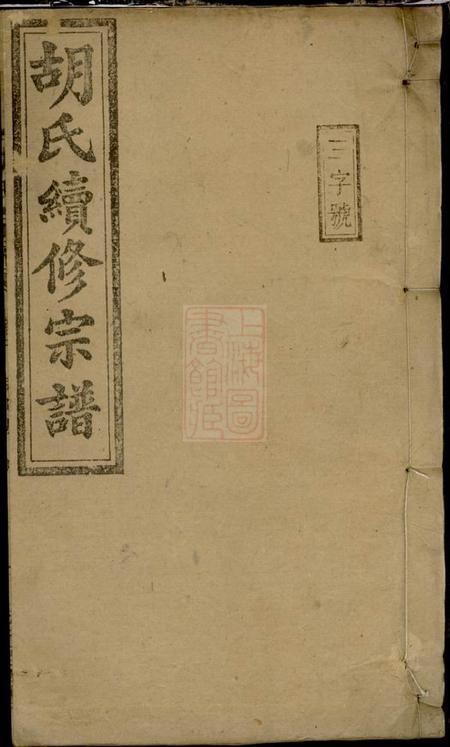 三字號
上海圖
書館藏
胡氏續修宗譜